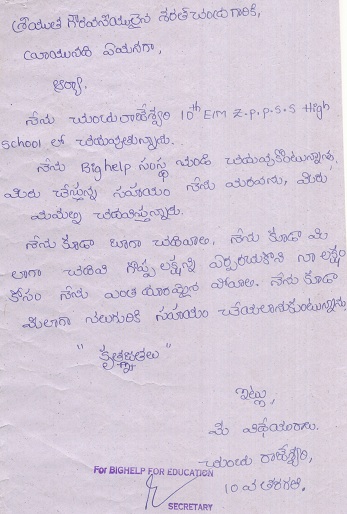 శ్రీయుత గౌరవనీయులైన శరత్ చంద్ర గారికి,
వ్రాయునది ఏమనగా,
ఆర్యా,
నేను చందు రాజేశ్వరి 10th E/m Z.P.P.S.S High
School లో చదువుతున్నాను.
నేను Bighelp సంస్థ నుండి చదువుకుంటున్నాను,
మీరు చేస్తున్న సహాయం నేను మరవను, మీరు
మమల్ని చదివిస్తున్నారు.
నేను కూడా బాగా చదివాలి, నేను కూడా మీ
లాగా చదివి గొప్ప లక్ష్యాన్ని ఏర్పరచుకొని నా లక్ష్యం
కోసం నేను ఎంత దూరమైన పోవాలి. నేను కూడా
మీలాగా నలుగురికి సహాయం చేయాలనుకుంటున్నాను
" కృతజ్ఞతలు "
ఇట్లు,
మీ విధేయురాలు.
చందు రాజేశ్వరి,
10వ తరగతి.
For BIGHELP FOR EDUCATION
SECRETARY